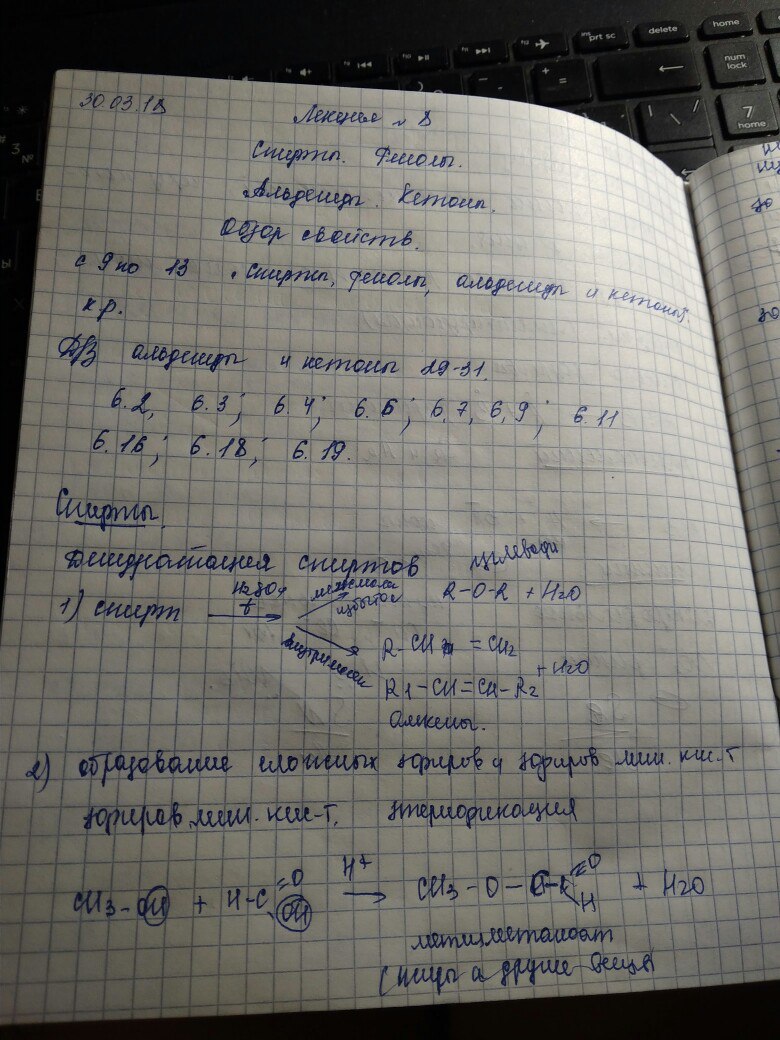 30.03.18
Лекция № 8
Спирты. Фенолы.
Альдегиды. Кетоны.
Обзор свойств.
с 9 по 13 . спирты, фенолы, альдегиды и кетоны.
кр.
ДЗ альдегиды и кетоны 29-31.
6.2, 6.3; 6.4; 6.6; 6.7, 6.9; 6.11
6.16; 6.18; 6.19.
Спирты.
Дегидратация спиртов
1) спирт H2SO4 t межмолек избыток R-O-R + H2O
внутримолек R-CH = CH2
R1-CH=CH-R2 + H2O
алкены.
2) образование сложных эфиров и эфиров мин. кис-т
эфиров мин. кис-т. этерификация
CH3-OH + H-C =O OH H+ → CH3-O-C =O H + H2O
метилметаноат